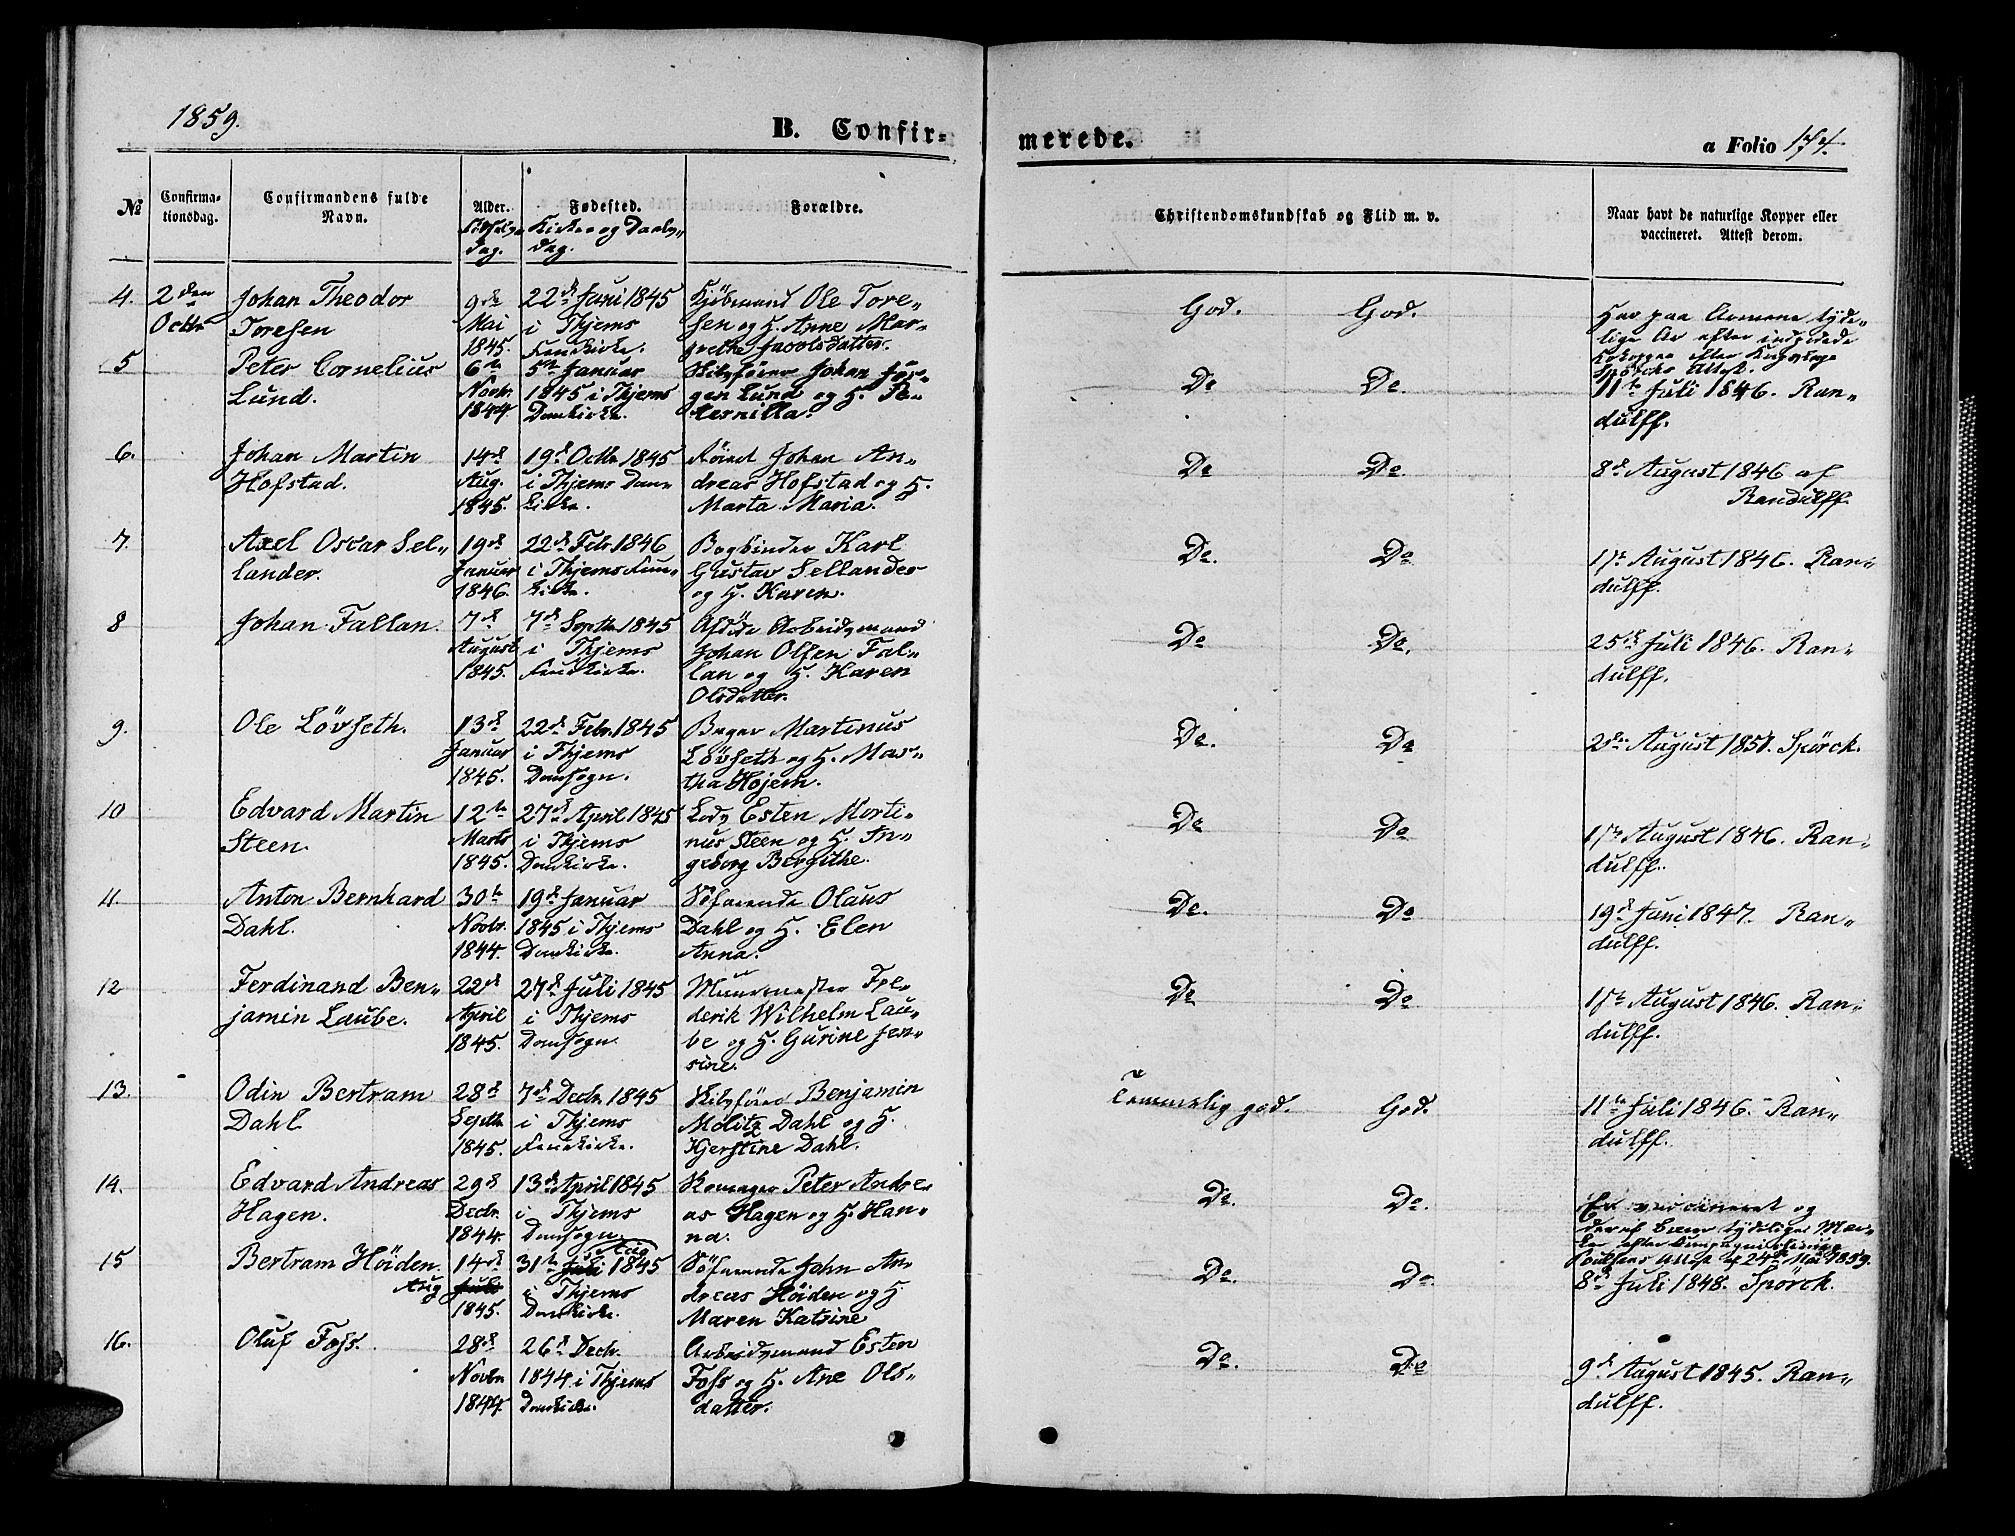 1859.
B. Confir-
merede.
a Folio 174.
No
Confirma-
tionsdag.
Confirmandens fulde
Navn.
Alder.
dag.
Fødested.
Kirke og Daabs-
dag.
Forældre.
Christendomskundskab og Flid m. v.
Naar havt de naturlige Kopper eller
vaccineret. Attest derom.
4.
2den
Octbr
Johan Theodor
Toresen
9de
Mai
1845.
22de Juni 1845
i Thjems
Fruekirke.
Kjøbmand Ole Tore-
sen og H. Anne Mar-
grethe Jacobsdatter.
God.
God.
Har paa Armene tyde-
lige Ar efter indpodede
Kokopper efter
Attest.
5
Peter Cornelius
Lund.
6te
Novbr.
1844.
5te Januar
1845 i Thjems
Domkirke.
Skibsfører Johan Jør-
gen Lund og H. Pe-
ternilla.
Do
Do.
11te Juli 1846. Ran-
dulff.
6.
Johan Martin
Hofstad.
14de
Aug.
1845.
19de Octbr 1845
i Thjems Dom-
kirke.
Johan An-
dreas Hofstad og H.
Marta Maria.
Do
Do.
8de August 1846 af
Randulff.
7.
Axel Oscar Sel-
lander.
19de
Januar
1846.
22de Febr. 1846
i Thjems Frue-
kirke.
Bogbinder Karl
Gustav Sellander
og H. Karen.
Do.
Do
17te August 1846. Ran-
dulff.
8
Johan Fallan.
7de
August
1845.
7de Septbr 1845
i Thjems
Fruekirke.
Afdøde Arbeidsmand
Johan Olsen Fal-
lan og H. Karen
Olsdatter.
Do
Do.
25de Juli 1846. Ran-
dulff.
9.
Ole Løvseth.
13de
Januar
1845.
22de Febr. 1845
i Thjems
Domsogn.
Bager Martinus
Løvseth og H. Mar-
tha Hojem.
Do.
Do
2den August 1851. Spørck.
10
Edvard Martin
Steen.
12te
Marts
1845.
27de April 1845
i Thjems
Domkirke.
Lods Esten Morti-
nus Steen og H. In-
geborg Bergithe.
Do
Do
17te August 1846. Ran-
dulff.
11.
Anton Bernhard
Dahl.
30te
Novbr.
1844.
19de Januar
1845 i Thjems
Domkirke.
Søfarende Olaus
Dahl og H. Elen
Anna.
Do.
Do
19de Juni 1847. Ran-
dulff.
12
Ferdinand Ben-
jamin Laube.
22de
April
1845.
27de Juli 1845
i Thjems
Domsogn.
Muurmester Fre-
derik Wilhelm Lau-
be og H. Gurine Jen-
sine.
Do
Do
17te August 1846. Ran-
dulff.
13.
Odin Bertram
Dahl
28de
Septbr
1845.
7de Decbr. 1845
i Thjems
Fruekirke.
Skibsfører Benjamin
Molitz Dahl og H.
Kjerstine Dahl.
Temmelig god.
God.
11te Juli 1846. Ran-
dulff.
14.
Edvard Andreas
Hagen.
29de
Decbr.
1844.
13de April 1845
i Thjems
Domsogn.
Peter Andre-
as Hagen og H. Han-
na.
Do.
Do.
Er vaccineret og
deraf bærer tydelige Mær-
ker efter
Poulsens Attest af 24de Mai 1859.
15
Bertram Høiden.
14de
Aug
Juli
1845.
31te Juli Aug 1845
i Thjems
Domkirke.
Søfarende John An-
dreas Høiden og H
Maren Katrine
Do.
Do.
8de Juli 1848. Spørck.
16.
Oluf Foss.
28de
Novbr
1844.
26de Decbr.
1844 i Thjems
Domkirke.
Arbeidsmand Esten
Foss og H. Ane Ols-
datter.
Do.
Do
9de August 1845. Ran-
dulff.